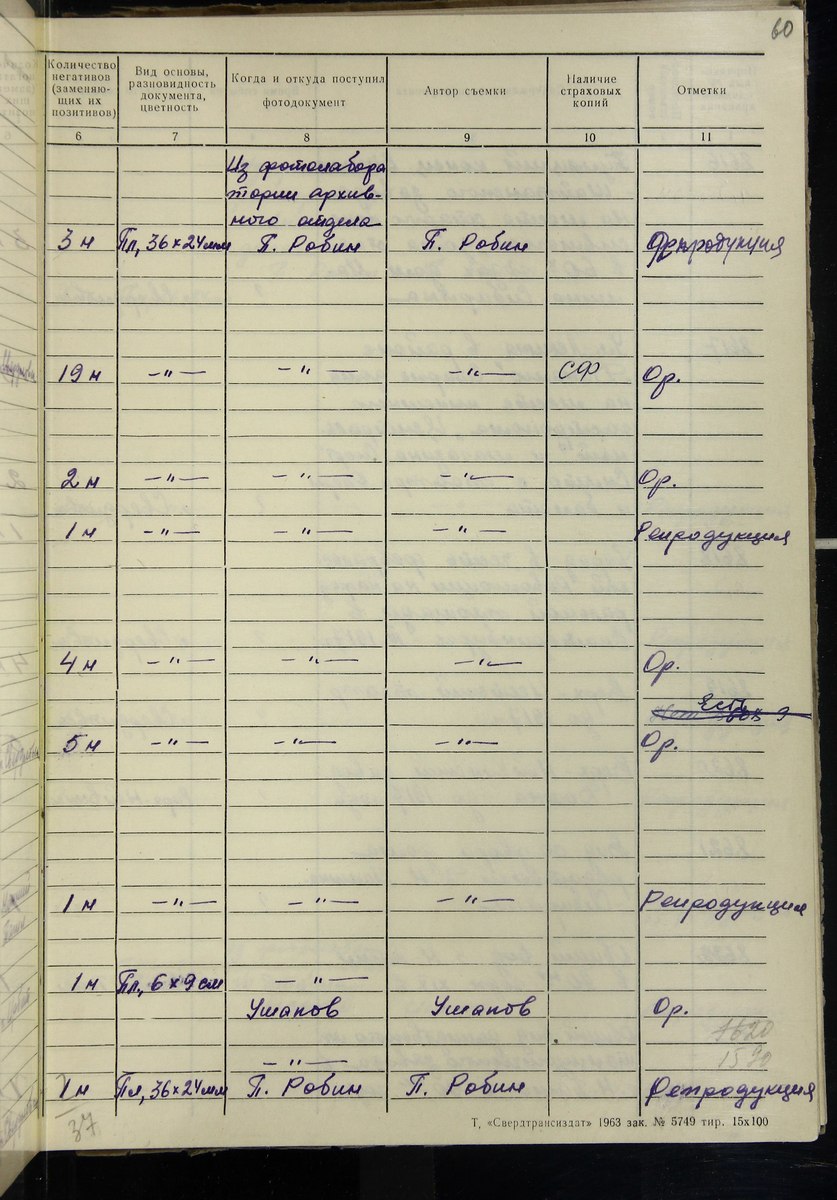 60
Количество негативов (заменяю- щих их позитивов)
Вид основы, разновидность документа, цветность
Когда и откуда поступил фотодокумент
Автор съемки
Наличие страховых копий
Отметки
6 7 8 9 10 11
Из фотолабора
тории архив-
ного отдела
3 н Пл, 36×24мм П. Робин П. Робин Репродукция
19 н —"— —"— —"— СФ Ор.
2 н —"— —"— —"— Ор.
1 н —"— —"— —"— Репродукция
4 н —"— —"— —"— Ор.
Есть
5 н —"— —"— —"— Ор.
1 н —"— —"— —"— Репродукция
1 н Пл, 6×9 см —"—
Ушаков Ушаков Ор.
1620
1590
—"—
1 н Пл, 36×24мм П. Робин П. Робин Репродукция
37
Т. «Свердтрансиздат» 1963 зак. № 5749 тир. 15х100